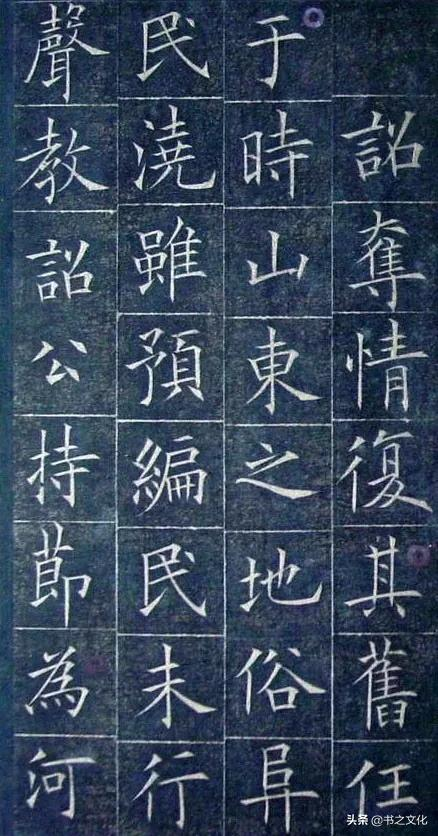 詔奪情復其舊任
于時山東之地俗阜
民澆雖預編民未行
聲教詔公持節為河
头条 @书之文化